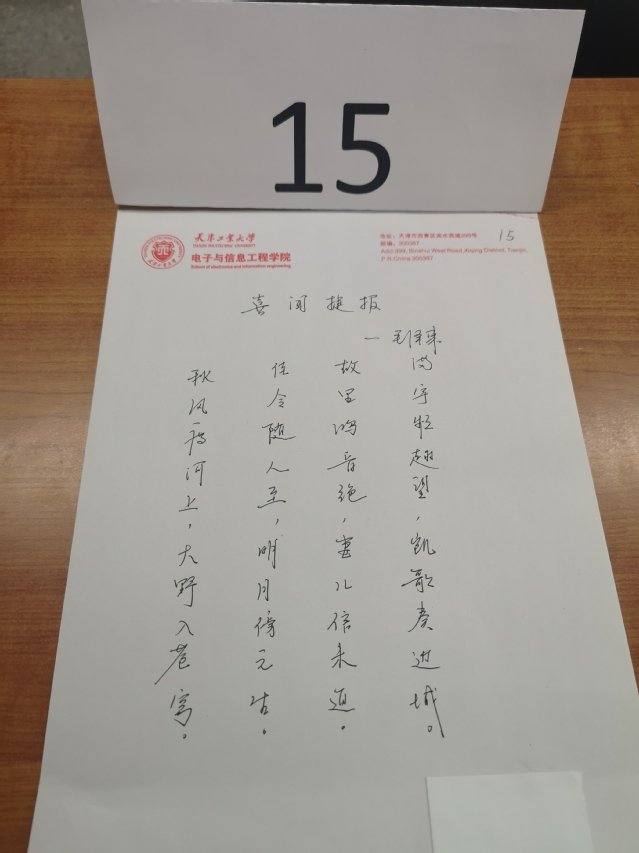 15
天津工业大学
TIANJIN POLYTECHNIC UNIVERSITY
电子与信息工程学院
School of electronics and information engineering
地址：天津市西青区宾水西道399号
邮编：300387
Add:399, Binshui West Road,Xiqing District, Tianjin,
P.R.China 300387
15
喜闻捷报
一毛泽东
秋风度河上，大野入苍穹。
佳令随人至，明月傍云生。
故里鸿音绝，妻儿信未通。
满宇频翘望，凯歌奏边城。